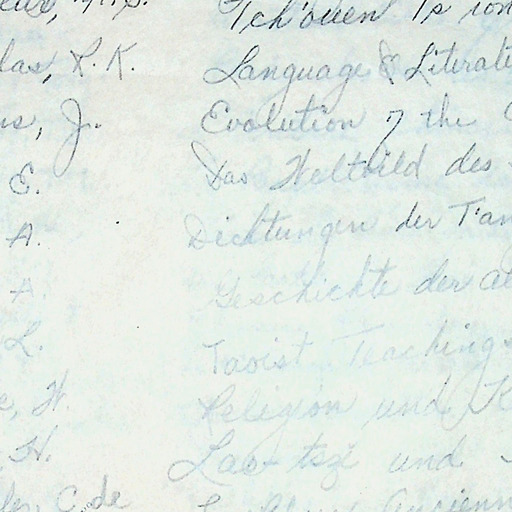 Tch'ouen Ts
las, R. K. Language & Literat
ns, J. Evolution of the
E. Das Weltbild des
A. Dichtungen der T'an
A. Geschichte der al
L. Taoist Teachings
e, W. Religion und K
H. Lao-tsze und
C. de Ancienn